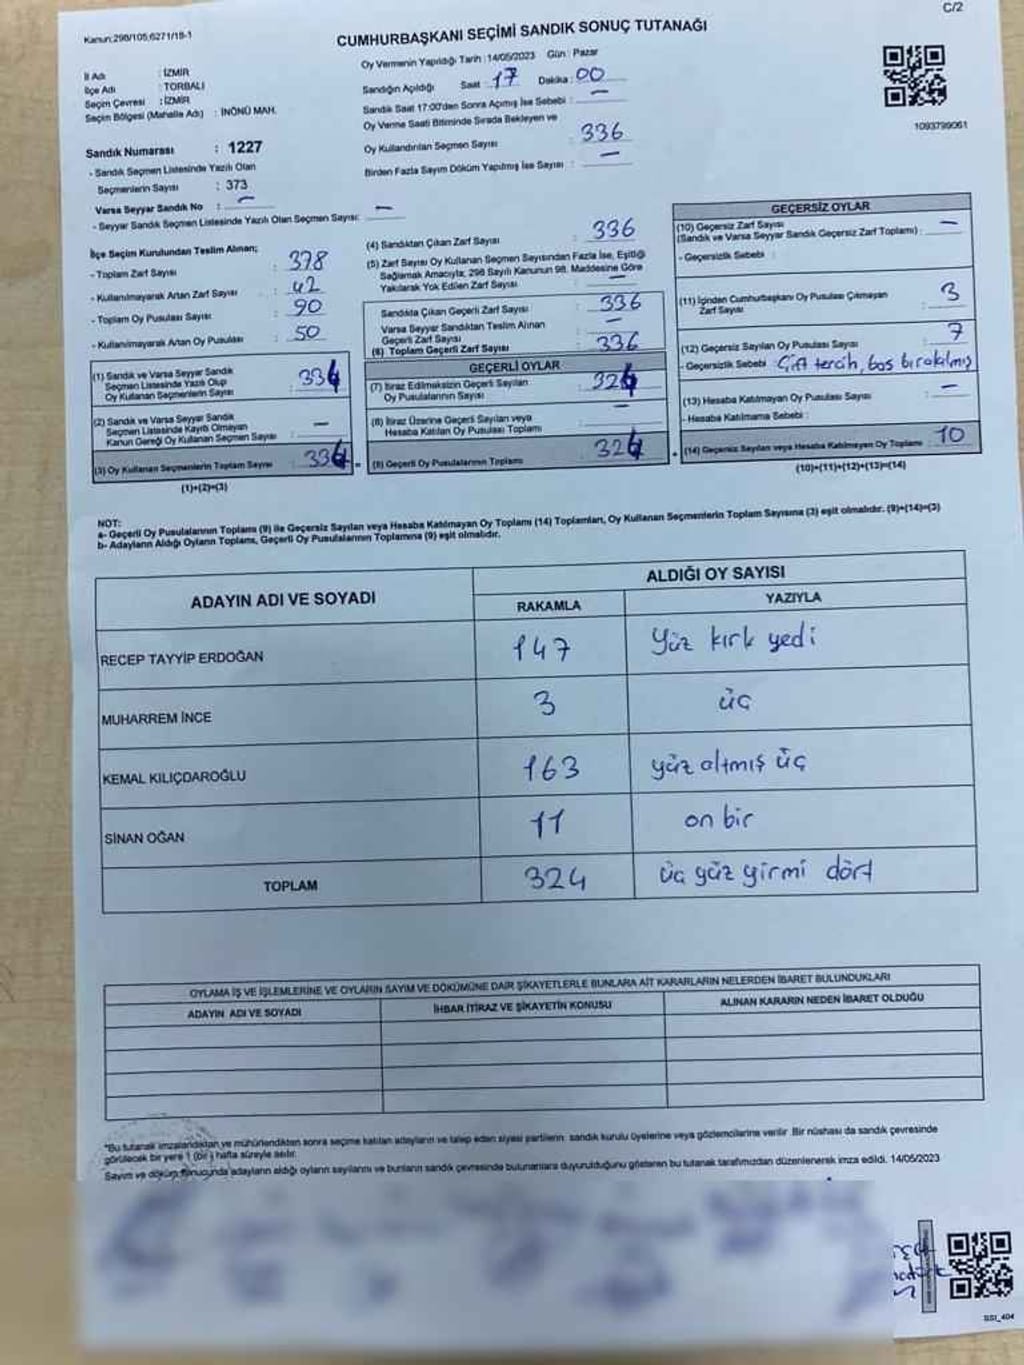 C/2
Kanun:298/105;6271/18-1
CUMHURBAŞKANI SEÇİMİ SANDIK SONUÇ TUTANAĞI
İl Adı : İZMİR
İlçe Adı : TORBALI
Seçim Çevresi : İZMİR
Seçim Bölgesi (Mahalle Adı) : İNÖNÜ MAH.
Sandık Numarası : 1227
- Sandık Seçmen Listesinde Yazılı Olan
Seçmenlerin Sayısı : 373
Varsa Seyyar Sandık No : —
- Seyyar Sandık Seçmen Listesinde Yazılı Olan Seçmen Sayısı: —
Oy Vermenin Yapıldığı Tarih :14/05/2023 Gün : Pazar
Sandığın Açıldığı Saat : 17 Dakika : 00
Sandık Saat 17:00'den Sonra Açımış İse Sebebi : —
Oy Verme Saati Bitiminde Sırada Bekleyen ve
Oy Kullandırılan Seçmen Sayısı : 336
Birden Fazla Sayım Döküm Yapılmış İse Sayısı : —
1093799061
İlçe Seçim Kurulundan Teslim Alınan;
- Toplam Zarf Sayısı : 378
- Kullanılmayarak Artan Zarf Sayısı : 42
- Toplam Oy Pusulası Sayısı : 90
- Kullanılmayarak Artan Oy Pusulası : 50
(1) Sandık ve Varsa Seyyar Sandık
Seçmen Listesinde Yazılı Olup
Oy Kullanan Seçmenlerin Sayısı : 334
(2) Sandık ve Varsa Seyyar Sandık
Seçmen Listesinde Kayıtlı Olmayan
Kanun Gereği Oy Kullanan Seçmen Sayısı : —
(3) Oy Kullanan Seçmenlerin Toplam Sayısı : 334
(1)+(2)=(3)
(4) Sandıktan Çıkan Zarf Sayısı : 336
(5) Zarf Sayısı Oy Kullanan Seçmen Sayısından Fazla İse, Eşitliği
Sağlamak Amacıyla; 298 Sayılı Kanunun 98. Maddesine Göre
Yakılarak Yok Edilen Zarf Sayısı : —
Sandıkta Çıkan Geçerli Zarf Sayısı : 336
Varsa Seyyar Sandıktan Teslim Alınan
Geçerli Zarf Sayısı : —
(6) Toplam Geçerli Zarf Sayısı : 336
GEÇERLİ OYLAR
(7) İtiraz Edilmeksizin Geçerli Sayılan
Oy Pusulasının Sayısı : 324
(8) İtiraz Üzerine Geçerli Sayılan veya
Hesaba Katılan Oy Pusulası Toplamı : —
(9) Geçerli Oy Pusulalarının Toplamı : 324
GEÇERSİZ OYLAR
(10) Geçersiz Zarf Sayısı
(Sandık ve Varsa Seyyar Sandık Geçersiz Zarf Toplamı) : —
- Geçersizlik Sebebi :
(11) İçinden Cumhurbaşkanı Oy Pusulası Çıkmayan
Zarf Sayısı : 3
(12) Geçersiz Sayılan Oy Pusulası Sayısı : 7
- Geçersizlik Sebebi : Çift tercih, boş bırakılmış
(13) Hesaba Katılmayan Oy Pusulası Sayısı : —
- Hesaba Katılmama Sebebi :
(14) Geçersiz Sayılan veya Hesaba Katılmayan Oy Toplamı : 10
(10)+(11)+(12)+(13)=(14)
NOT:
a- Geçerli Oy Pusulalarının Toplamı (9) ile Geçersiz Sayılan veya Hesaba Katılmayan Oy Toplamı (14) Toplamları, Oy Kullanan Seçmenlerin Toplam Sayısına (3) eşit olmalıdır. (9)+(14)=(3)
b- Adayların Aldığı Oyların Toplamı, Geçerli Oy Pusulalarının Toplamına (9) eşit olmalıdır.
ADAYIN ADI VE SOYADI ALDIĞI OY SAYISI
RAKAMLA YAZIYLA
RECEP TAYYİP ERDOĞAN 147 Yüz kırk yedi
MUHARREM İNCE 3 üç
KEMAL KILIÇDAROĞLU 163 yüz altmış üç
SİNAN OĞAN 11 on bir
TOPLAM 324 üç yüz yirmi dört
OYLAMA İŞ VE İŞLEMLERİNE VE OYLARIN SAYIM VE DÖKÜMÜNE DAİR ŞİKAYETLERLE BUNLARA AİT KARARLARIN NELERDEN İBARET BULUNDUKLARI
ADAYIN ADI VE SOYADI İHBAR İTİRAZ VE ŞİKAYETİN KONUSU ALINAN KARARIN NEDEN İBARET OLDUĞU
*Bu tutanak imzalandıktan ve mühürlendikten sonra seçime katılan adayların ve talep eden siyasi partilerin sandık kurulu üyelerine veya gözlemcilerine verilir. Bir nüshası da sandık çevresinde
görülecek bir yere 1 (bir) hafta süreyle asılır.
Sayım ve döküm sonucunda adayların aldığı oyların sayılarını ve bunların sandık çevresinde bulunanlara duyurulduğunu gösteren bu tutanak tarafımızdan düzenlenerek imza edildi. 14/05/2023
SSI_404